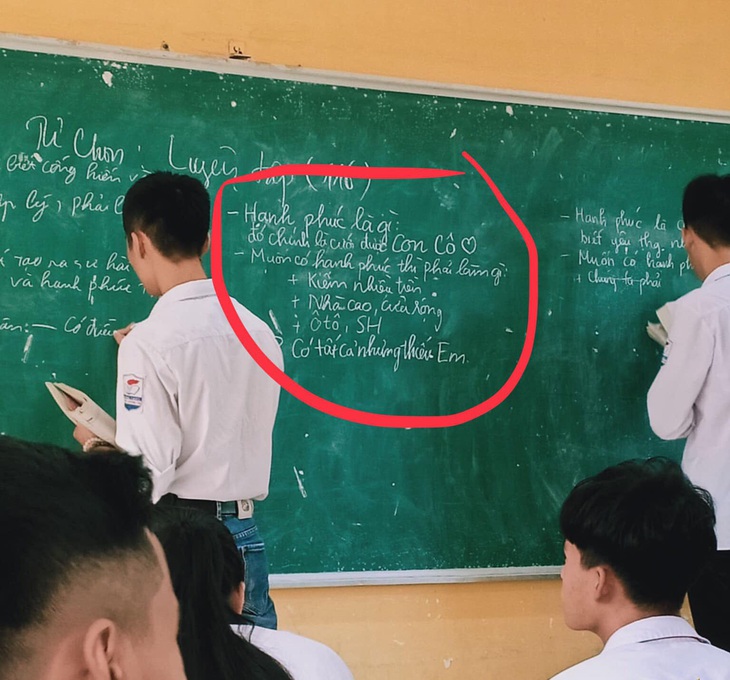 Tự Chọn: Luyện tập (
biết cống hiến và
phải
tạo ra sự
và hạnh phúc
Có được
- Hạnh phúc là gì
đó chính là cưới được con Cô ♡
- Muốn có hạnh phúc thì phải làm gì:
+ Kiếm nhiều tiền
+ Nhà cao, cửa rộng
+ Ô tô, SH
Có tất cả nhưng thiếu Em.
- Hạnh phúc là
biết yêu
- Muốn có hạnh
+ Chúng ta phải